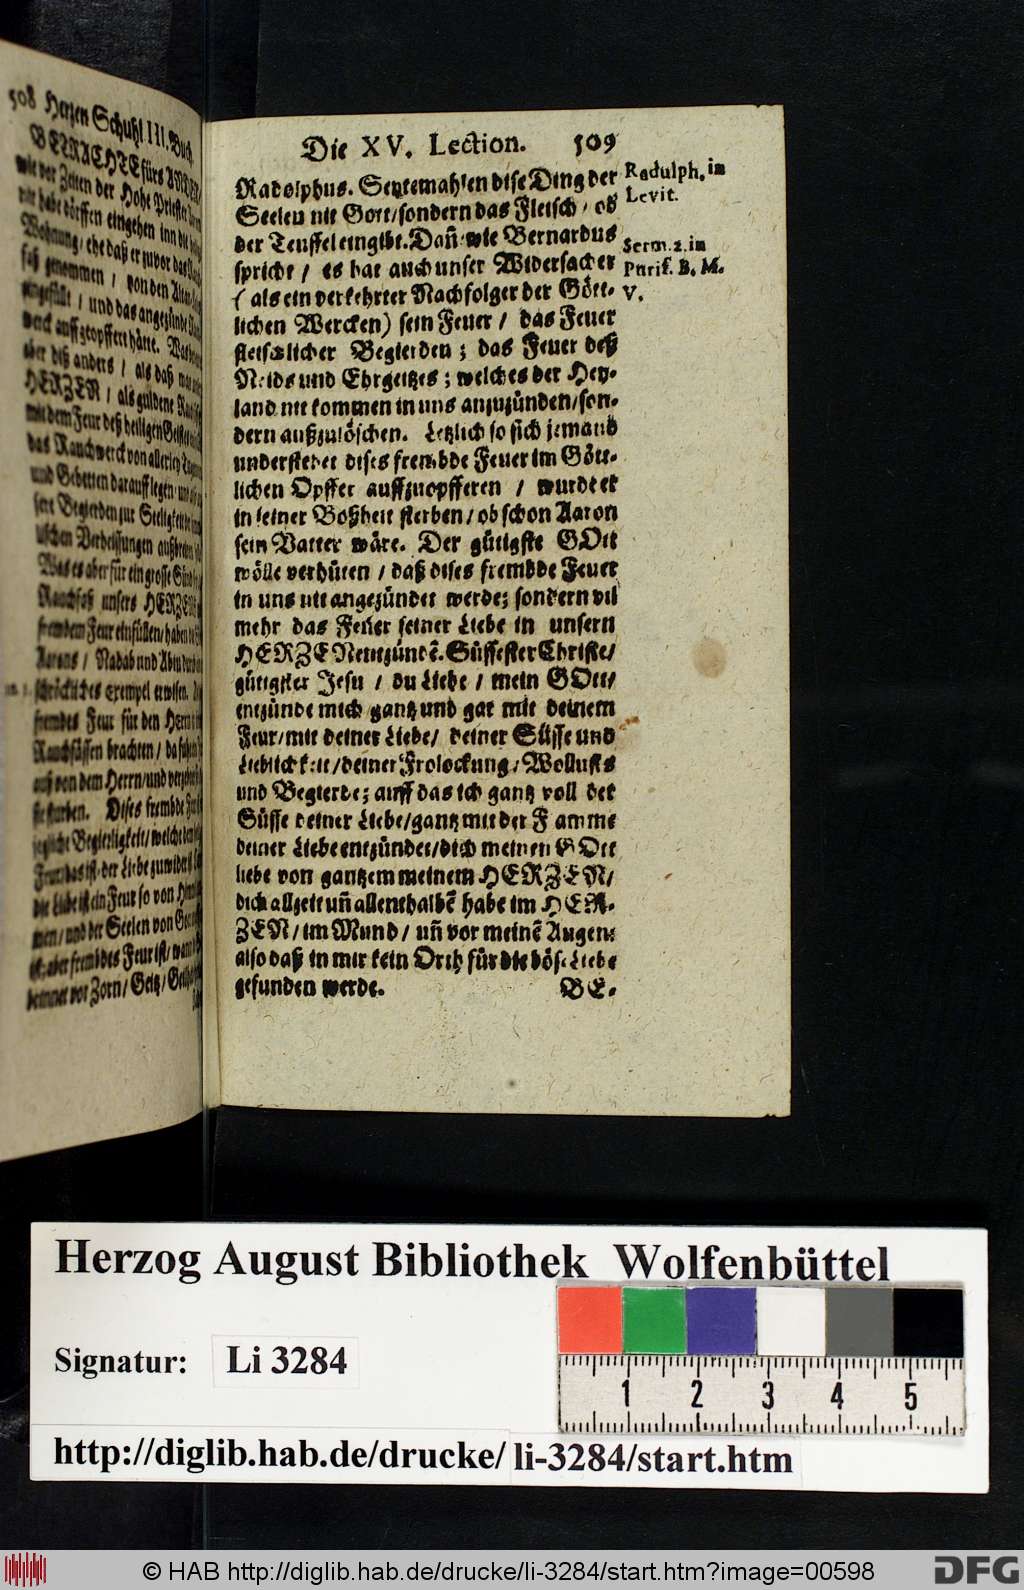 508 Hertzen Schuhl III. Buch.
BETRACHTE fürs ANDER/
wie vor Zeiten der Hohe Priester
nit habe dörffen eingehen inn die
Wohnung/ ehe daß er zuvor das
faß genommen / von den Altar
angefüllt / und das angezündte
werck auffgeopffert hätte. Was
aber diß anders / als daß
HERZEN / als guldene
mit dem Feur deß heiligen Geistes
das Rauchwerck von allerley
und Gebetten darauff legen
sere Begierden zur Seeligkeit
lischen Verheissungen außbreiten
Was es aber für ein grosse Sünd
Rauchfaß unsers HERZENS
frembdem Feur einfüllen/ haben
Aarons / Nadab und Abiu
schröckliches exempel erwisen.
frembdes Feur für den Herrn
Rauchfässern brachten / da
auß von dem Herrn/ und
sie sturben. Dises frembde
jegliche Begierligkeit/ welche
Feur/ das ist/ der Liebe zuwider ist
die Liebe ist ein Feur so von
men/ und der Seelen von
ist; aber frembdes Feur ist/ wann
brinnet vor Zorn/ Geitz/
Die XV. Lection. 509
Radolphus. Seytemahlen dise Ding der
Seelen nit Gott/sondern das Fleisch / ob
der Teuffel eingibt. Dañ wie Bernardus
spricht / es hat auch unser Widersacher
( als ein verkehrter Nachfolger der Gött-
lichen Wercken) sein Feuer / das Feuer
fleischlicher Begierden ; das Feuer deß
Neids und Ehrgeitzes ; welches der Hey-
land nit kommen in uns anzuzünden/son-
dern außzulöschen. Letzlich so sich jemand
understehet dises frembde Feuer im Gött-
lichen Opffer auffzuopfferen / wurdt er
in seiner Boßheit sterben/ ob schon Aaron
sein Vatter wäre. Der gütigste GOtt
wölle verhüten / daß dises frembde Feuer
in uns nit angezündet werde; sondern vil
mehr das Feuer seiner Liebe in unsern
HERZEN entzündẽ. Süssester Christe/
gütigster Jesu / du Liebe / mein GOtt/
entzünde mich gantz und gar mit deinem
Feur/ mit deiner Liebe/ deiner Süsse und
Lieblichkeit/deiner Frolockung/ Wollusts
und Begierde; auff das ich gantz voll der
Süsse deiner Liebe/gantz mit der Flamme
deiner Liebe entzündet/dich meinen GOtt
liebe von gantzem meinem HERZEN/
dich allzeit uñ allenthalbẽ habe im HER-
ZEN/ im Mund/ uñ vor meinẽ Augen:
also daß in mir kein Orth für die böse Liebe
gefunden werde. BE-
Radulph. in
Levit.
Serm. 2. in
Purif. B. M.
V.
Herzog August Bibliothek Wolfenbüttel
Signatur: Li 3284
1 2 3 4 5
http://diglib.hab.de/drucke/ li-3284/start.htm
© HAB http://diglib.hab.de/drucke/li-3284/start.htm?image=00598
DFG